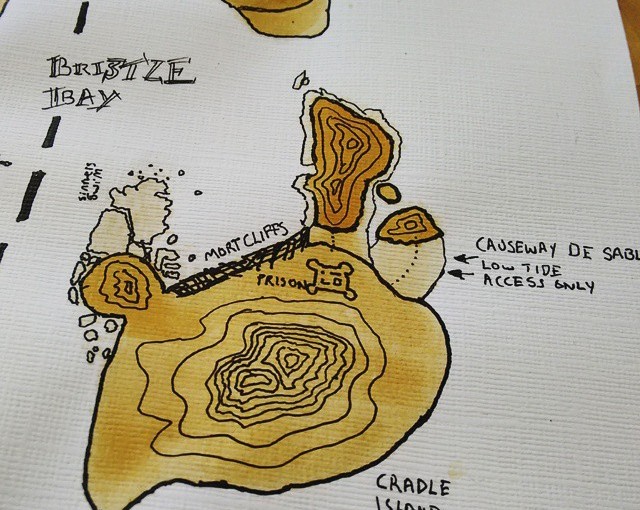 BRISTZE
BAY
MORT CLIFFS
PRISON
CAUSEWAY DE SABL
LOW TIDE
ACCESS ONLY
CRADLE
ISLAND